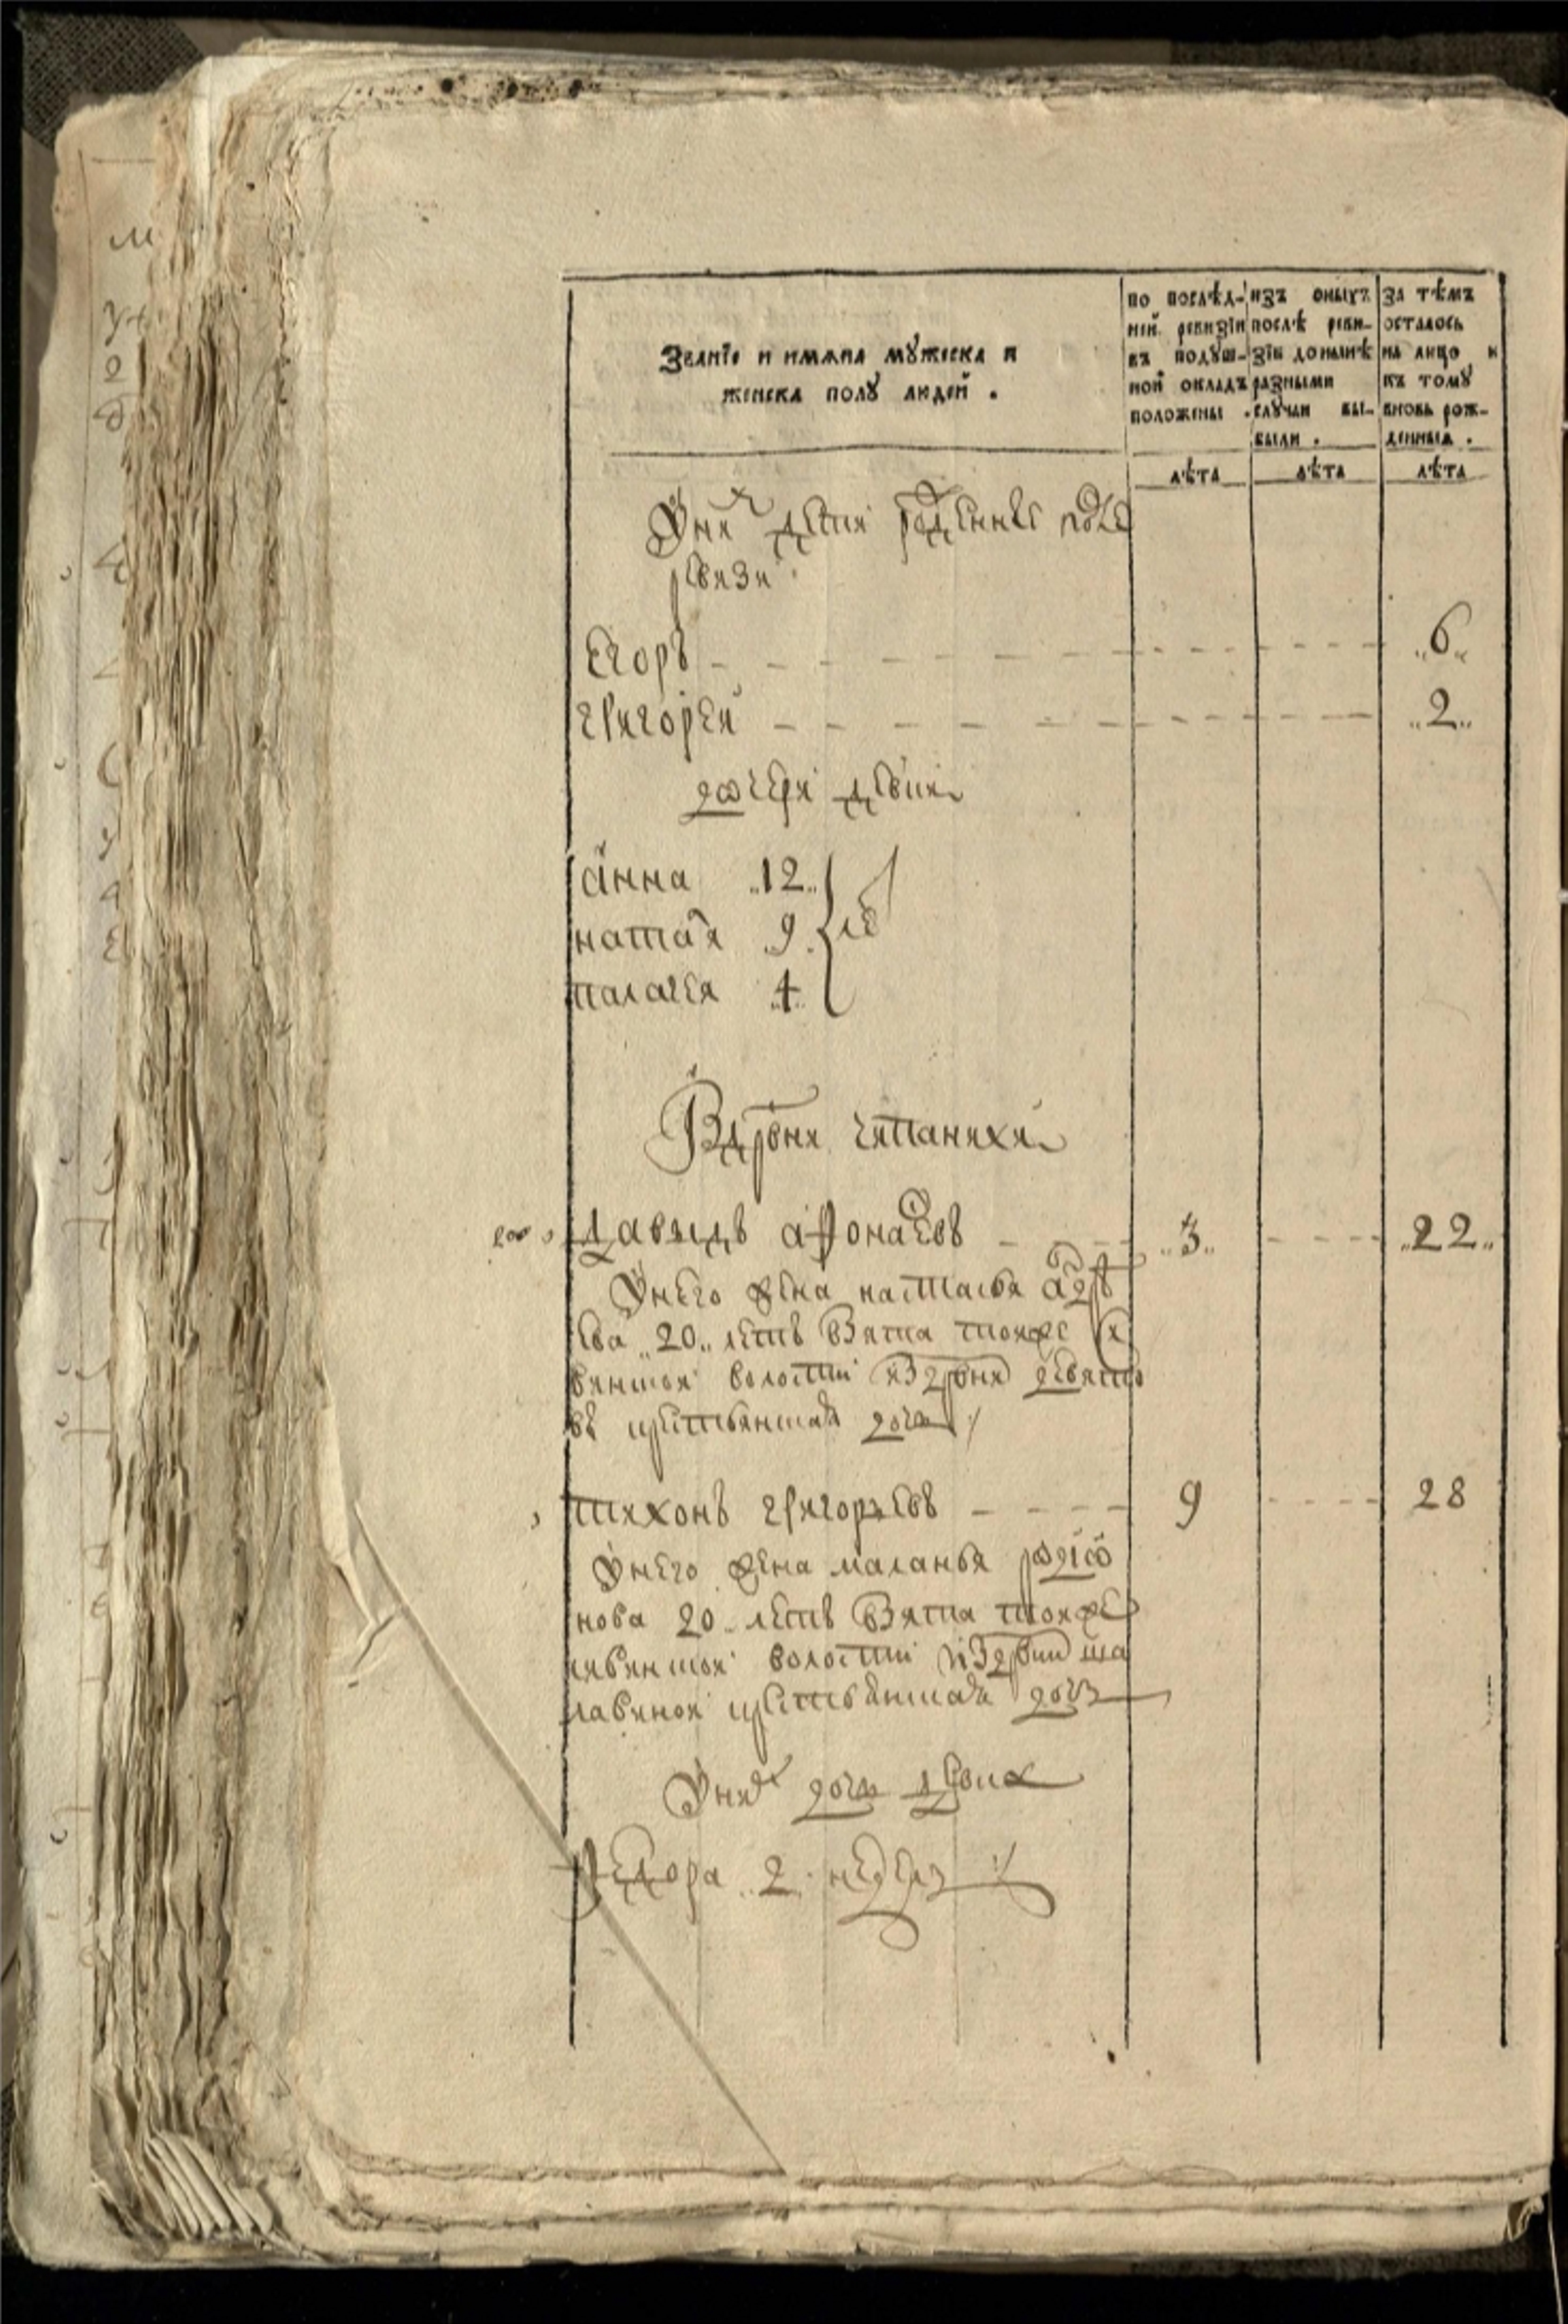 Званїе и имѧна мꙋжеска и
женска полꙋ людей .
по послѣд-
ней ревизїи
въ подꙋш-
ной окладъ
положены .
изъ оныхъ
послѣ реви-
зїи донынѣ
разными
слꙋчаи вы-
были .
За тѣмъ
осталось
на лицо и
къ томꙋ
вновь рож-
денныѧ .
лѣта лѣта лѣта
У них дети рожденные после
ревизи
Егоръ 6
григорей 2
дочери девки
анна 12
наталя 9
палагея 4
В деревни чепанихи
давыдъ афонасевъ 3 22
У него жена настасья
ева 20 летъ взята тояже
волости из деревни
крестьянская дочь
тихонъ григорьевъ 9 28
У него жена маланья родио
нова 20 летъ взята тояже
волости из деревни ша
лавиной крестьянская дочь
У них дочь девка
федора 2 недель